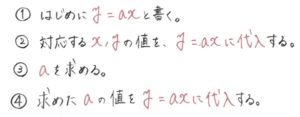 ① はじめに y=axと書く。
② 対応するx,yの値を、y=axに代入する。
③ aを求める。
④ 求めたaの値をy=axに代入する。